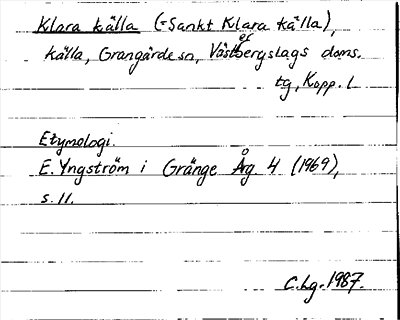 Klara källa (=Sankt Klara källa),
källa, Grangärde sn, Västerbergslags doms.
tg, Kopp. l.
Etymologi.
E. Yngström i Gränge Årg. 4 (1969),
s. 11.
C.Lg. 1987.